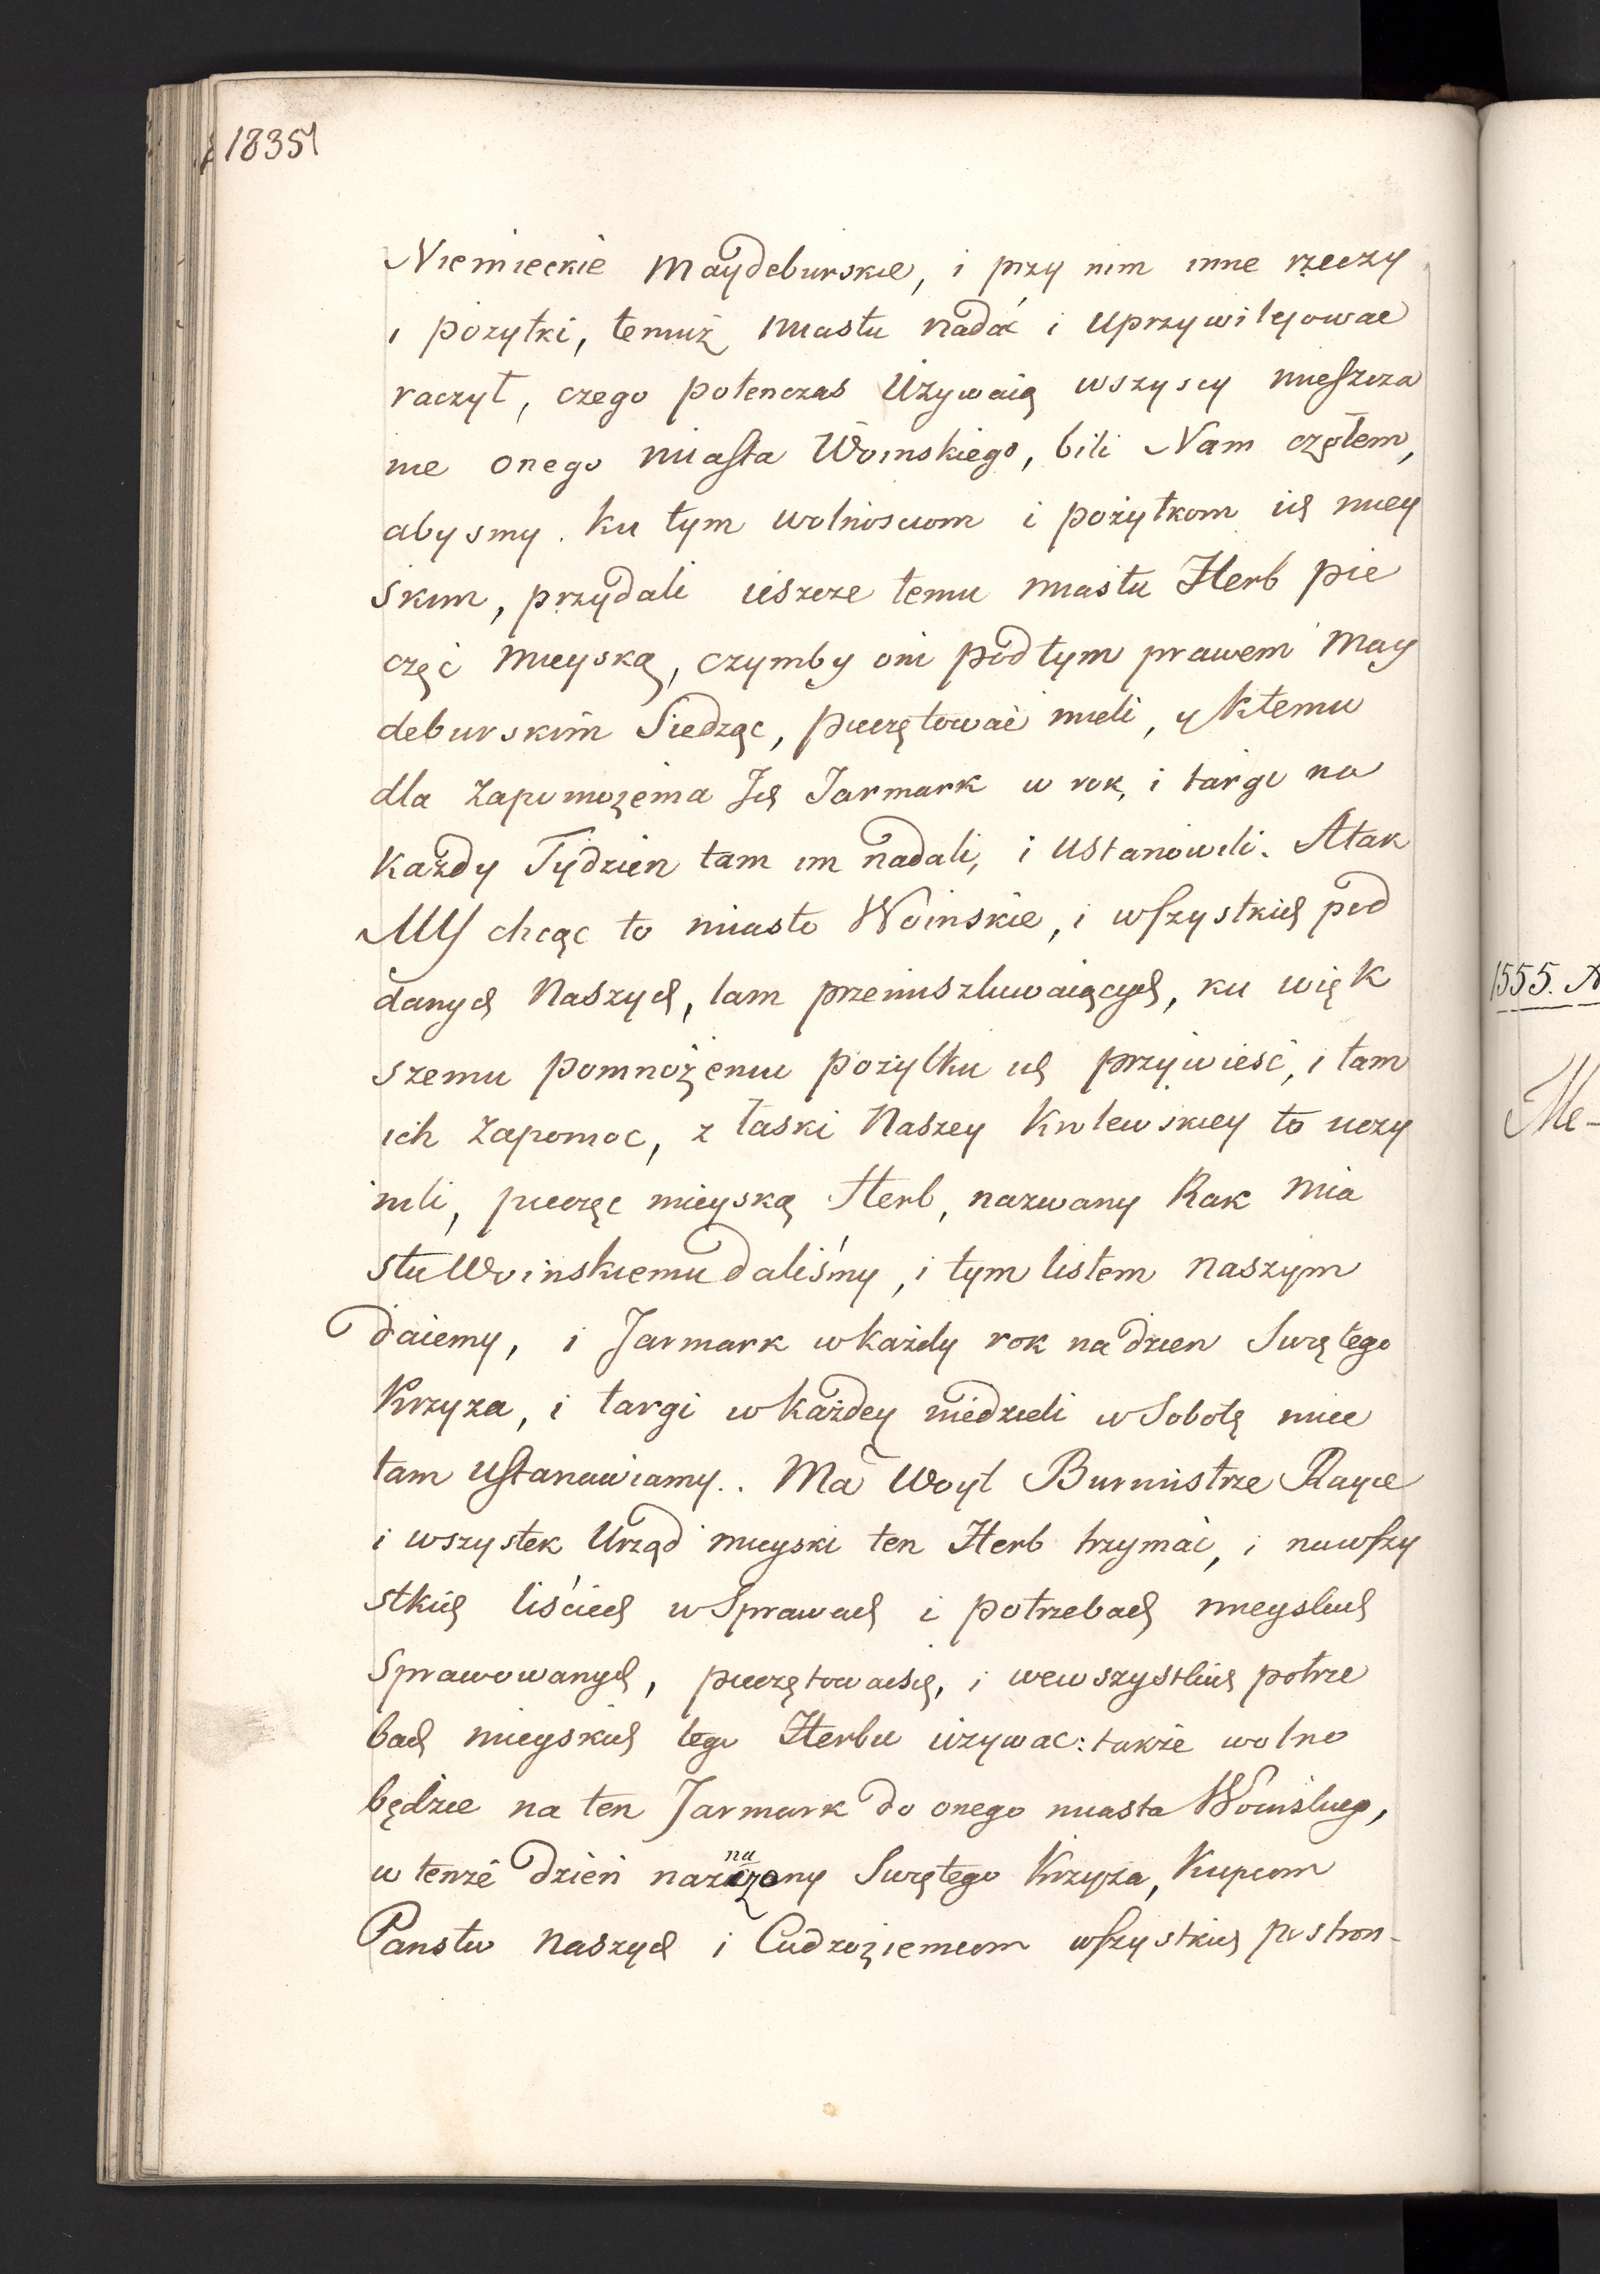 18351
Niemieckie Maydeburskie, i przy nim inne rzeczy
i pożytki, temuż miastu nadać i uprzywilejować
raczył, czego potenczas używaią wszyscy mieszcza
nie onego miasta Woinskiego, bili Nam czołem,
abysmy ku tym wolnosciom i pożytkom ich miey
skim, przydali ieszcze temu miastu Herb pie
częć mieyską, czymby oni pod tym prawem May
deburskim Siedząc, pieczętować mieli, y ktemu
dla zapomożenia Ich Jarmark w rok, i targi na
każdy Tydzien tam im nadali, i ustanowili. Atak
My chcąc to miasto Woinskie, i wszystkich pod
danych Naszych, tam przemiszkiwaiących, ku więk
szemu pomnożeniu pożytku ich przywieść, i tam
ich zapomoc, z łaski Naszey Krolewskiey to uczy
nili, pieczęc mieyską Herb, nazwany Rak Mia
stu Woinskiemu daliśmy, i tym listem naszym
daiemy, i Jarmark w każdy rok na dzien Swiętego
Krzyza, i targi w każdey niedzieli w Sobotę miec
tam ustanawiamy.. Ma Woyt Burmistrze Rayce
i wszystek Urząd mieyski ten Herb trzymać, i nawszy
stkich liściech w Sprawach i potrzebach mieyskich
Sprawowanych, pieczętowaćsię, i wewszystkich potrze
bach mieyskich tego Herbu używac: także wolno
będzie na ten Jarmark do onego miasta Woinskiego,
na
w tenże dzień naznaczony Swiętego Krzyża, Kupcom
Panstw Naszych i Cudzoziemcom wszystkich postron-
1555. A
Me-